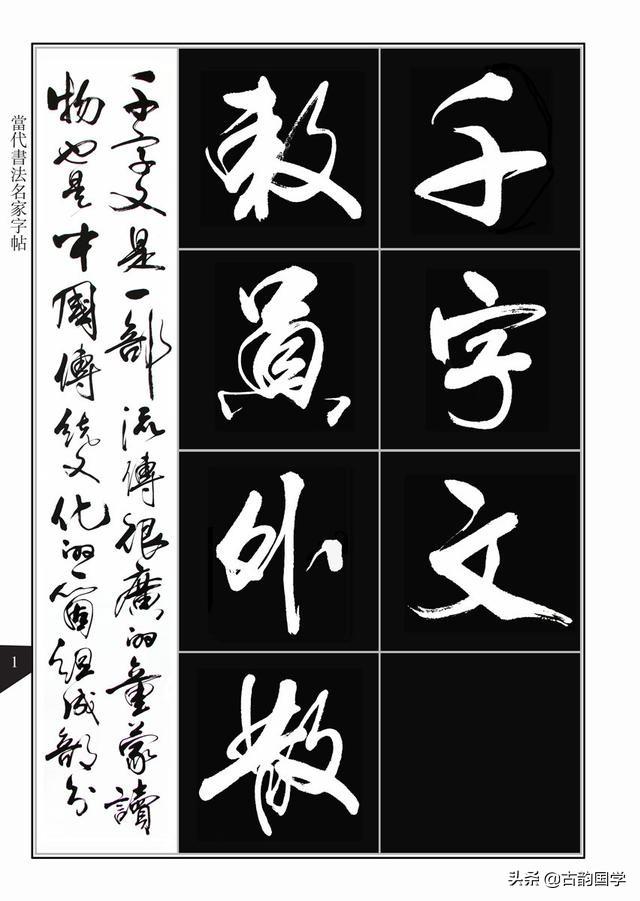 千字文
敕員外散
千字文是一部流傳很廣的童蒙讀
物也是中國傳統文化的一箇組成部分
當代書法名家字帖
1
头条 @古韵国学